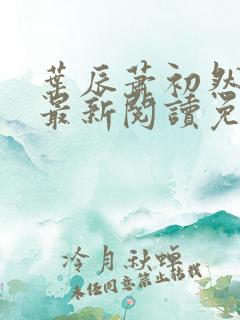 葉辰蕭初然
最新閱讀免
冷月秋蟬
未经同意禁止转载